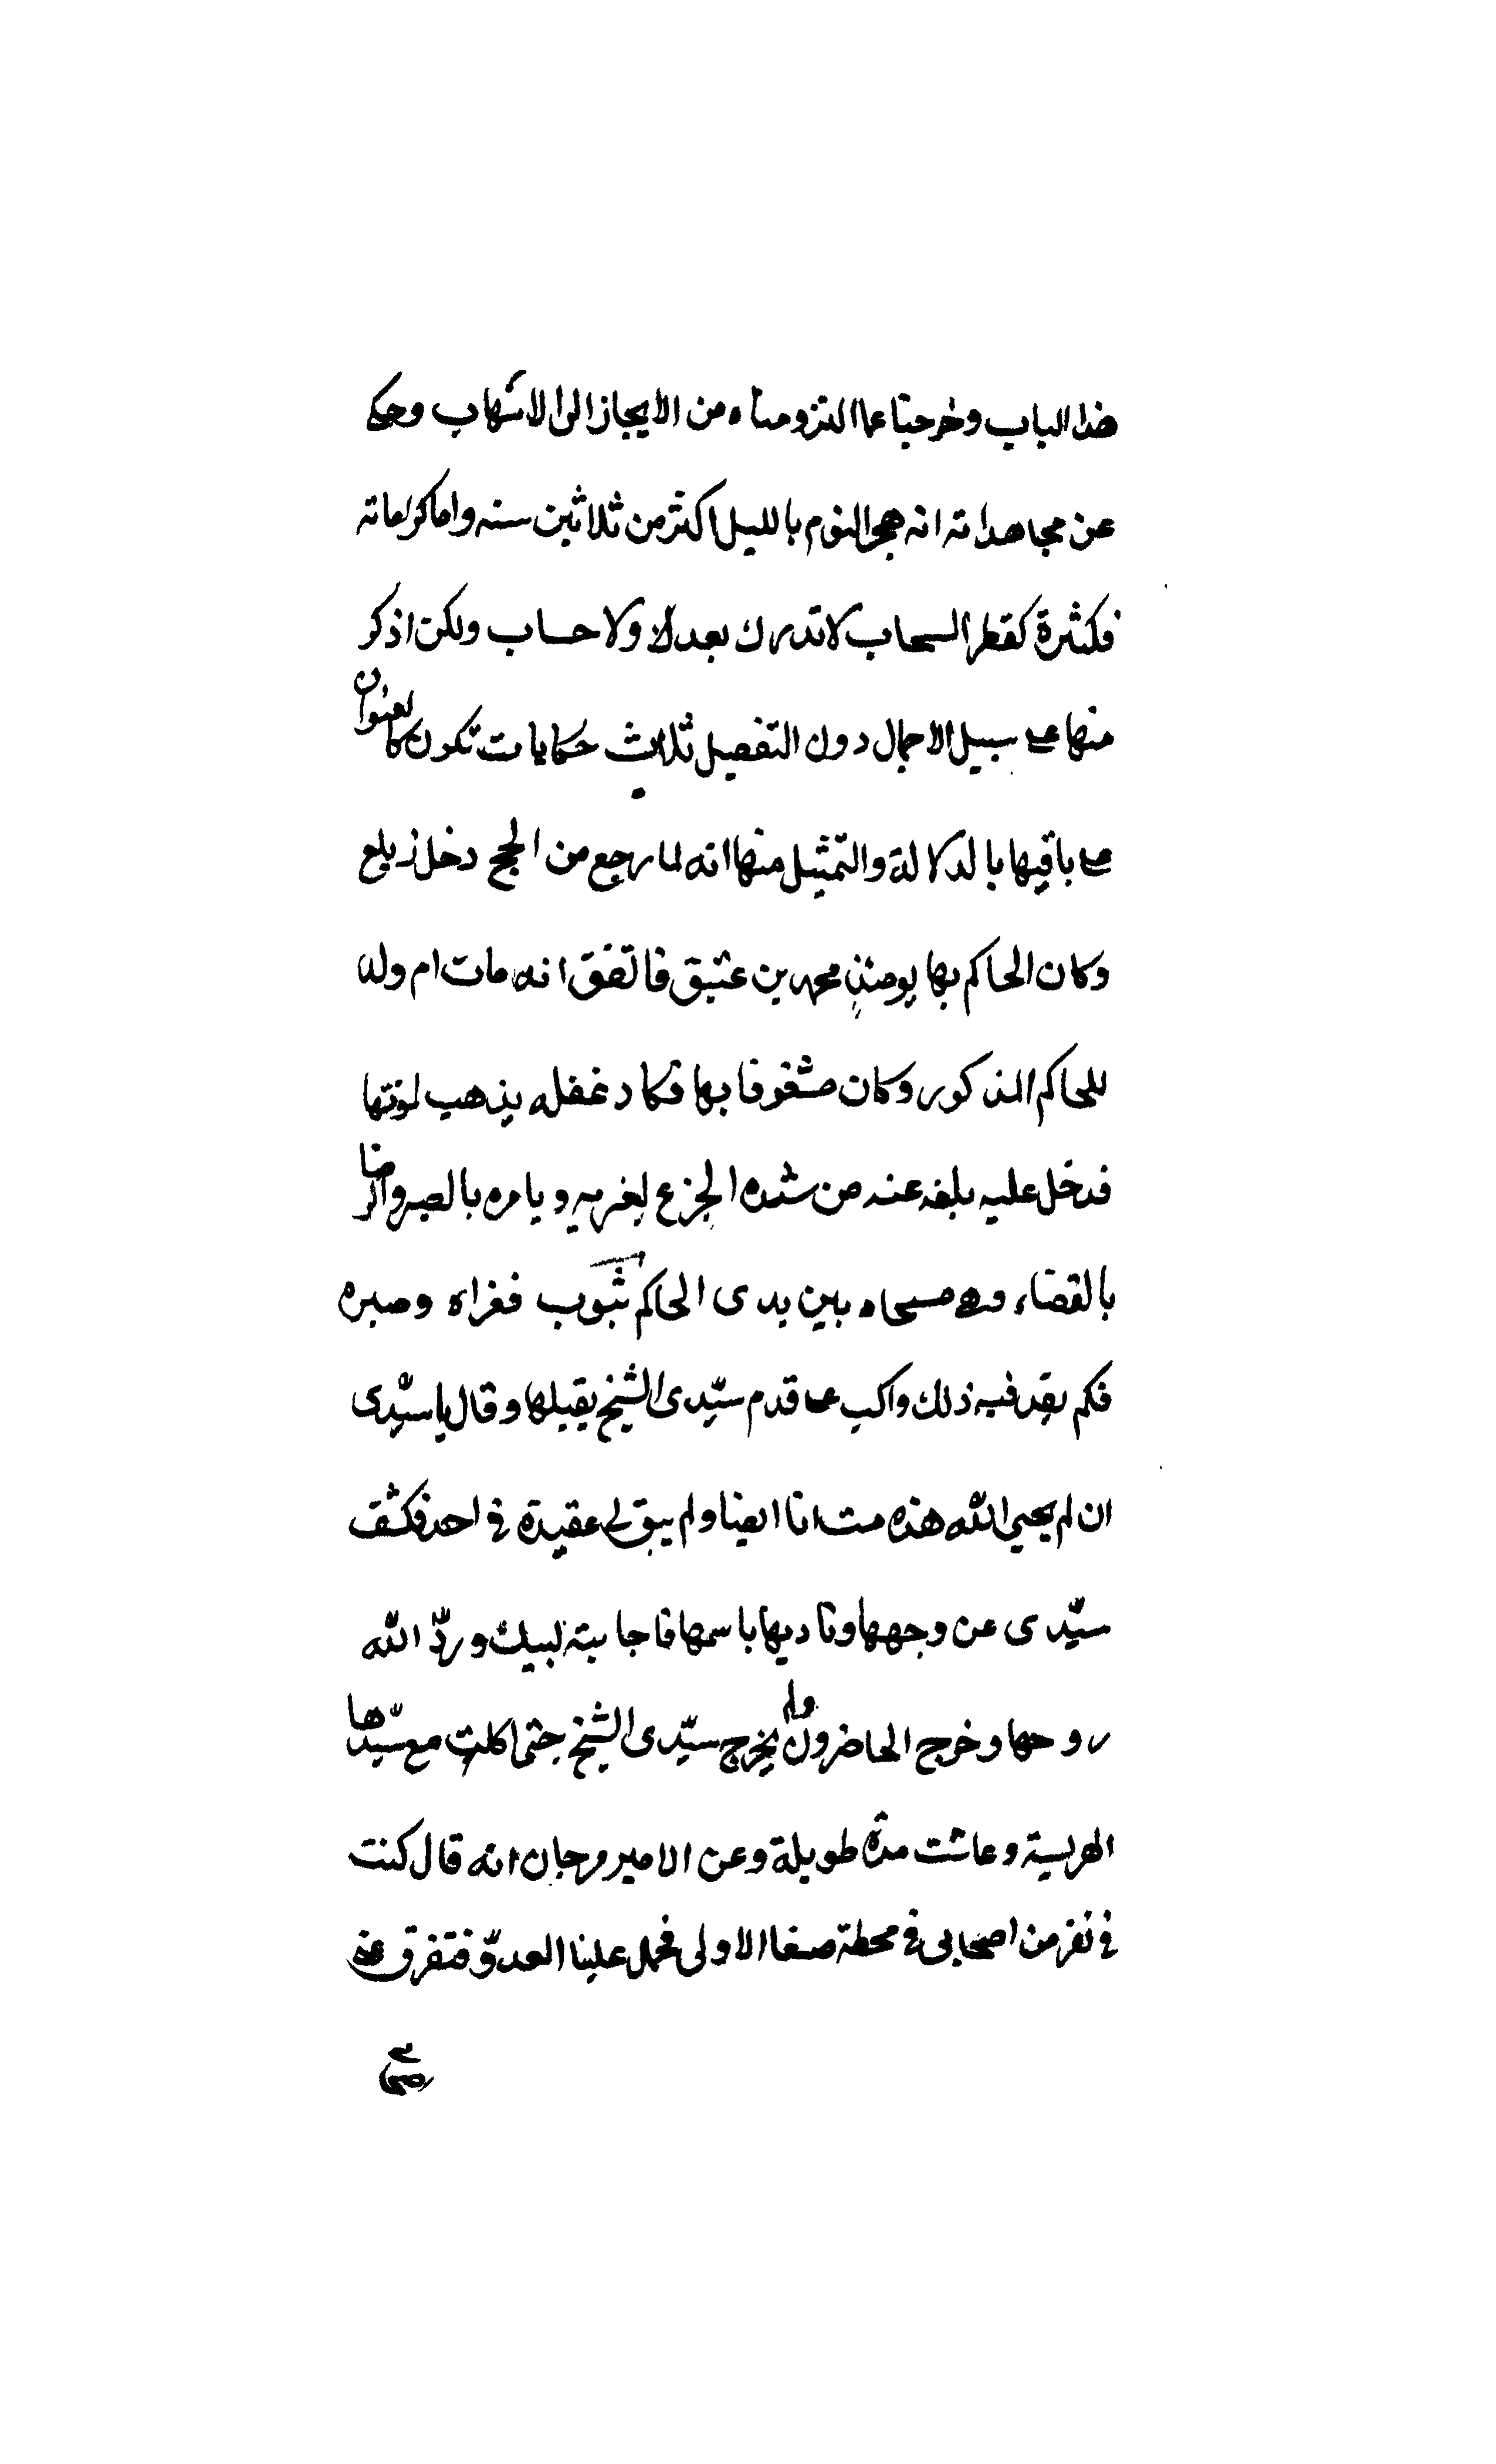 هذا الباب وخرجنا عما التزومناه من الايجاز الى الاسهاب وحكى
عن مجاهداته انه هجر النوم بالليل اكثر من ثلاثين سنه واما كراماته
فكثرة كقطر السحاب لا تدرك بعد ولا حساب ولكن اذكر
منها على سبيل الاجمال دون التفصيل ثلاث حكايات تكون كالعنوان
على باقيها بالدلالة والتمثيل منها انه لما رجع من الحج دخل زيلع
وكان الحاكم بها يومئذ محمد بن عتيق فاتفق انه مات ام ولد
للحاكم المذكور وكان مشغوفا بها فكاد عقله يذهب لموتها
فدخل عليه بلغه عنه من شده الجزع ليعزيه ويامره بالصبر والرضا
بالقضاء وهى مسجاه بين يدى الحاكم بثوب فعزاه وصبره
فكم يفد فيه ذلك واكب على قدم سيّدى الشيخ يقبلها وقال يا سيّدى
ان لم يحيى الله هذه مت انا ايضا ولم يبق لى عقيدة فى احد فكشف
سيّدى عن وجهها وناديها باسمها فاجابته لبيك وردّ الله
روحها وخرج الحاضرون ولم يخرج سيّدى الشيخ حتى اكلت مع سيّدها
الهريسة وعاشت مدّة طويلة وعن الامير مرجان انه قال كنت
فى نفر من اصحابى فى محطة صنعا الاولى فحمل علينا العدوّ فتفرق عنى